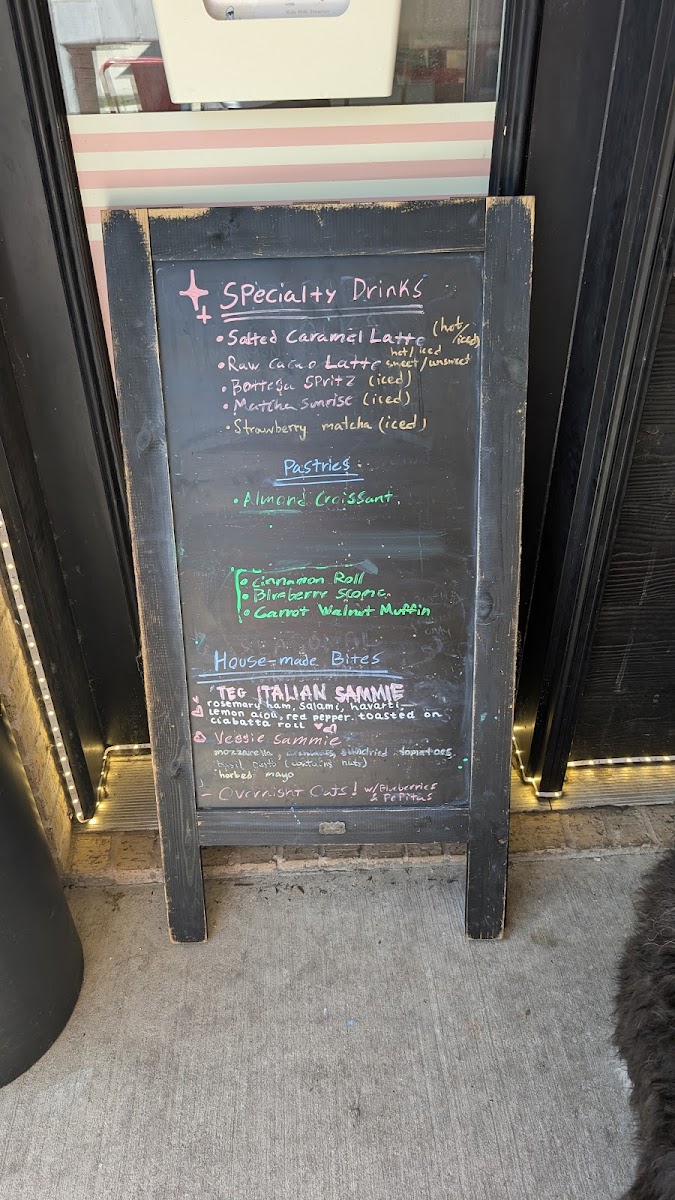 Specialty Drinks
• Salted Caramel Latte (hot/iced)
• Raw cacao Latte hot/iced sweet/unsweet
• Bottega Spritz (iced)
• Matcha Sunrise (iced)
• Strawberry matcha (iced)
Pastries
• Almond Croissant
• Cinnamon Roll
• Blueberry Scone
• Carrot Walnut Muffin
House-made Bites
TEG ITALIAN SAMMIE
rosemary ham, salami, havarti
lemon aioli, red pepper. toasted on
ciabatta roll
Veggie Sammie
mozzarella sundried tomatoes
basil pesto (contains nuts)
herbed mayo
- Overnight Oats! w/Blueberries
& Pepitas